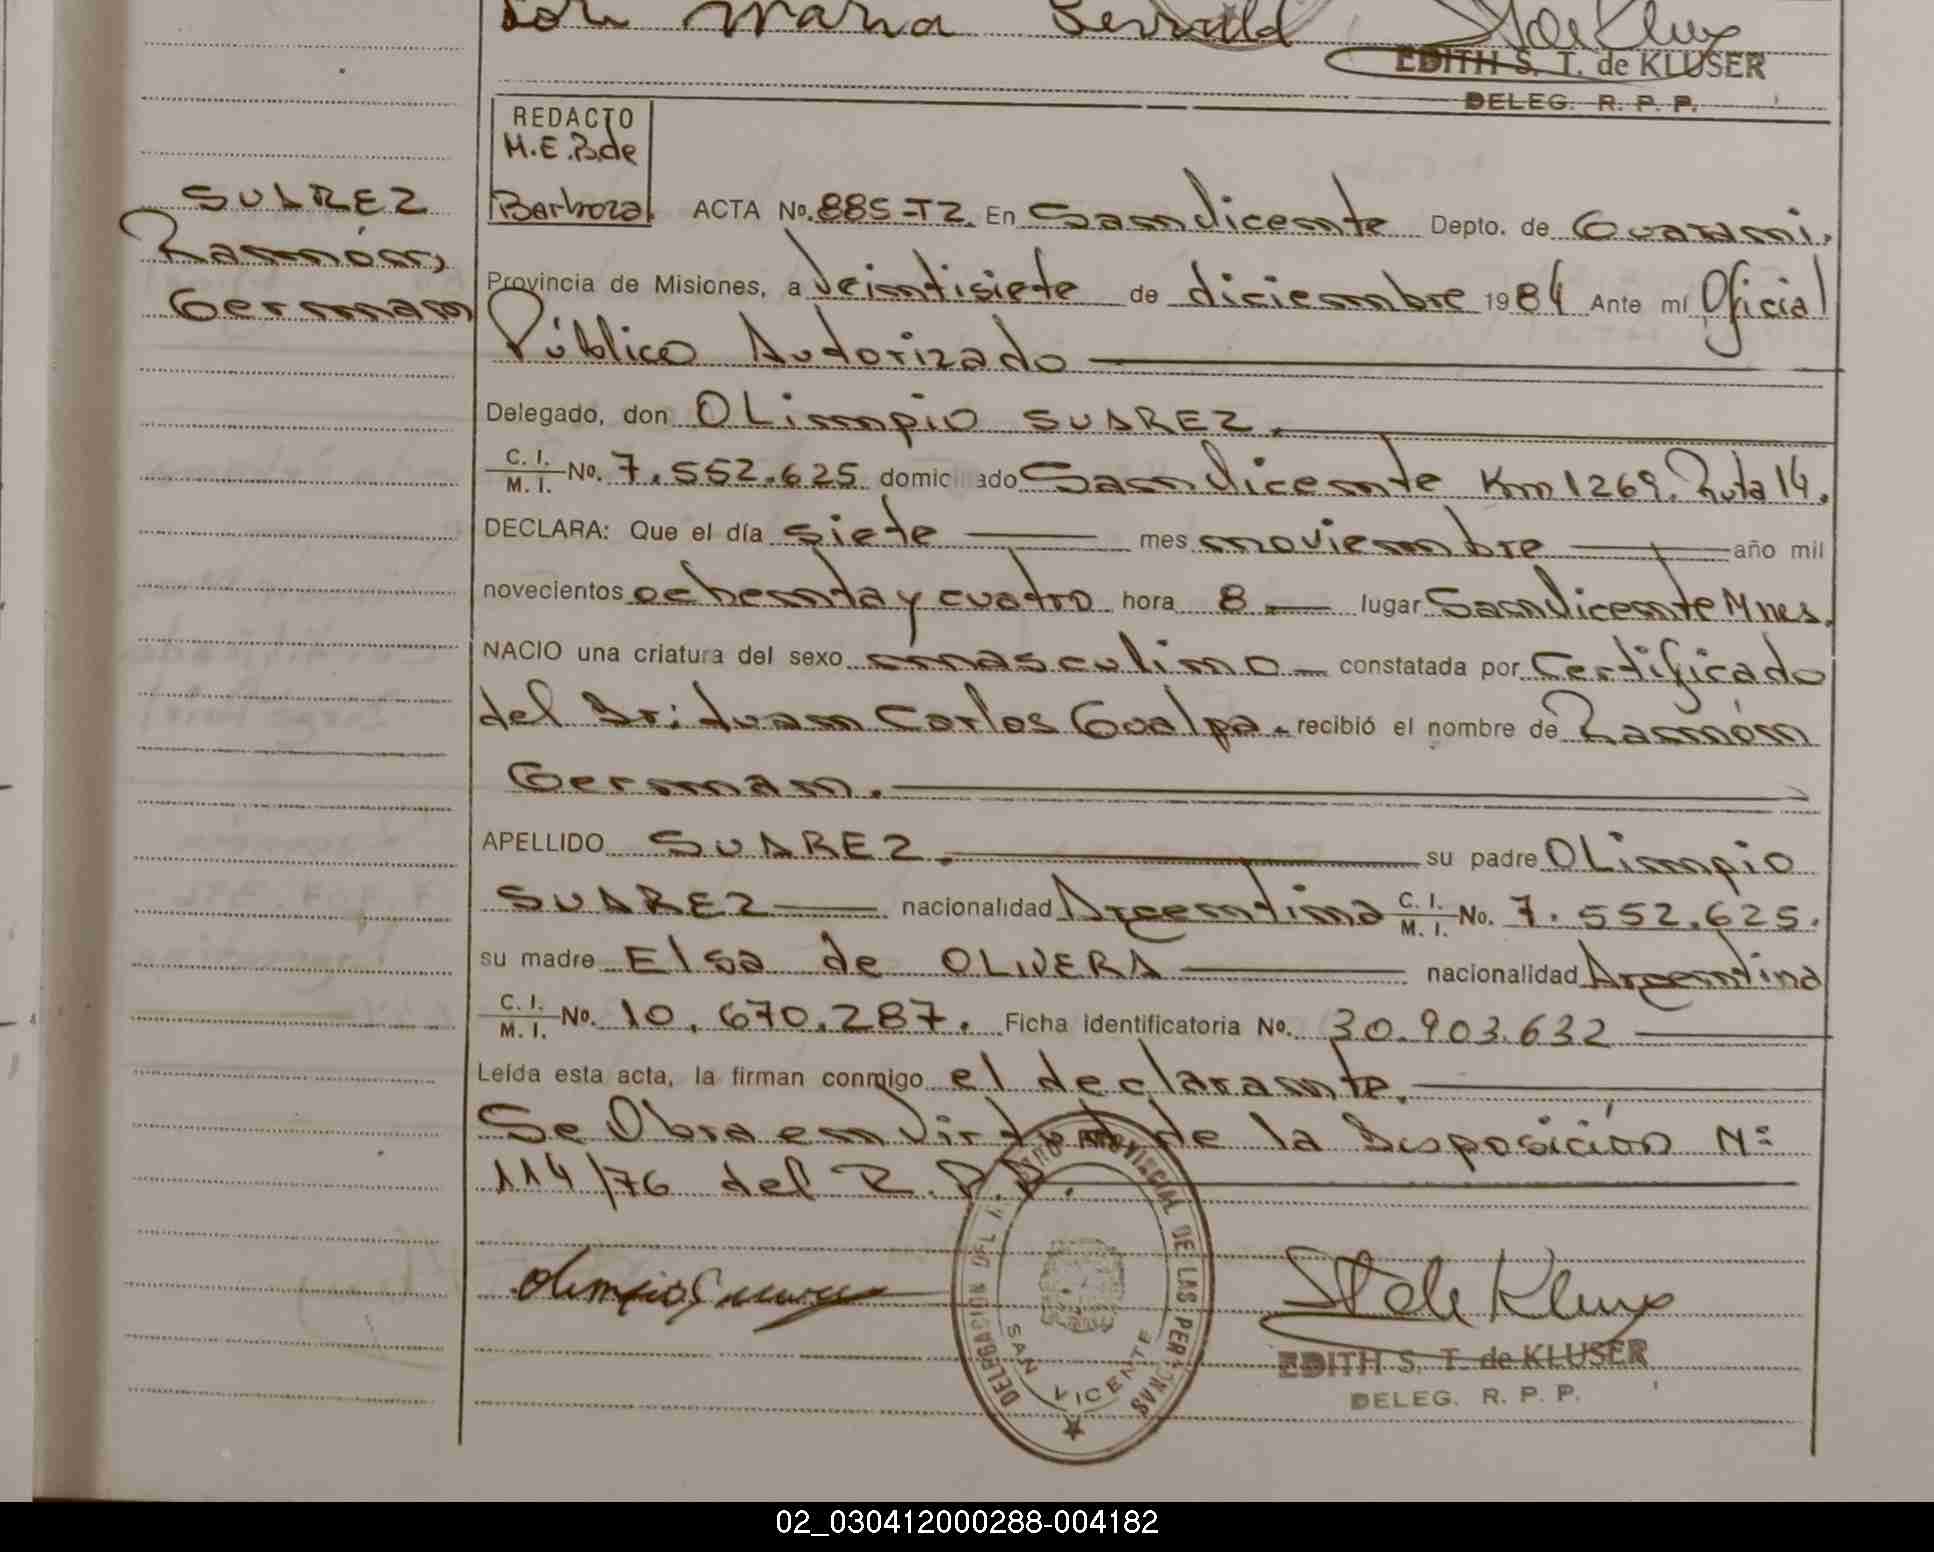 María
EDITH S. T. de KLUSER
DELEG. R. P. P.
REDACTO
M.E.B.de
Barboza.
SUAREZ
Ramón,
German
ACTA No. 885-T2. En San Vicente Depto. de Guaraní.
Provincia de Misiones, a Veintisiete de diciembre 1984 Ante mí Oficial
Público Autorizado
Delegado, don OLimpio SUAREZ.
C. I.
M. I. No. 7.552.625 domiciliado San Vicente Km 1269. Ruta 14.
DECLARA: Que el día siete mes noviembre año mil
novecientos ochenta y cuatro hora 8 lugar San Vicente Mnes.
NACIO una criatura del sexo masculino constatada por Certificado
del Dr: Juan Carlos Gualpa. recibió el nombre de Ramón
German.
APELLIDO SUAREZ. su padre OLimpio
SUAREZ nacionalidad Argentina C. I.
M. I. No. 7.552.625.
su madre Elsa de OLIVERA nacionalidad Argentina
C. I.
M. I. No. 10.670.287. Ficha identificatoria No. 30.903.632
Leída esta acta, la firman conmigo el declarante.
Se Obra en Virtud de la Disposición N:
114/76 del R.P.P.
Olimpio Suarez
DELEGACION DEL REGISTRO PROVINCIAL DE LAS PERSONAS
SAN VICENTE
St de Kluser
EDITH S. T. de KLUSER
DELEG. R. P. P.
02_030412000288-004182